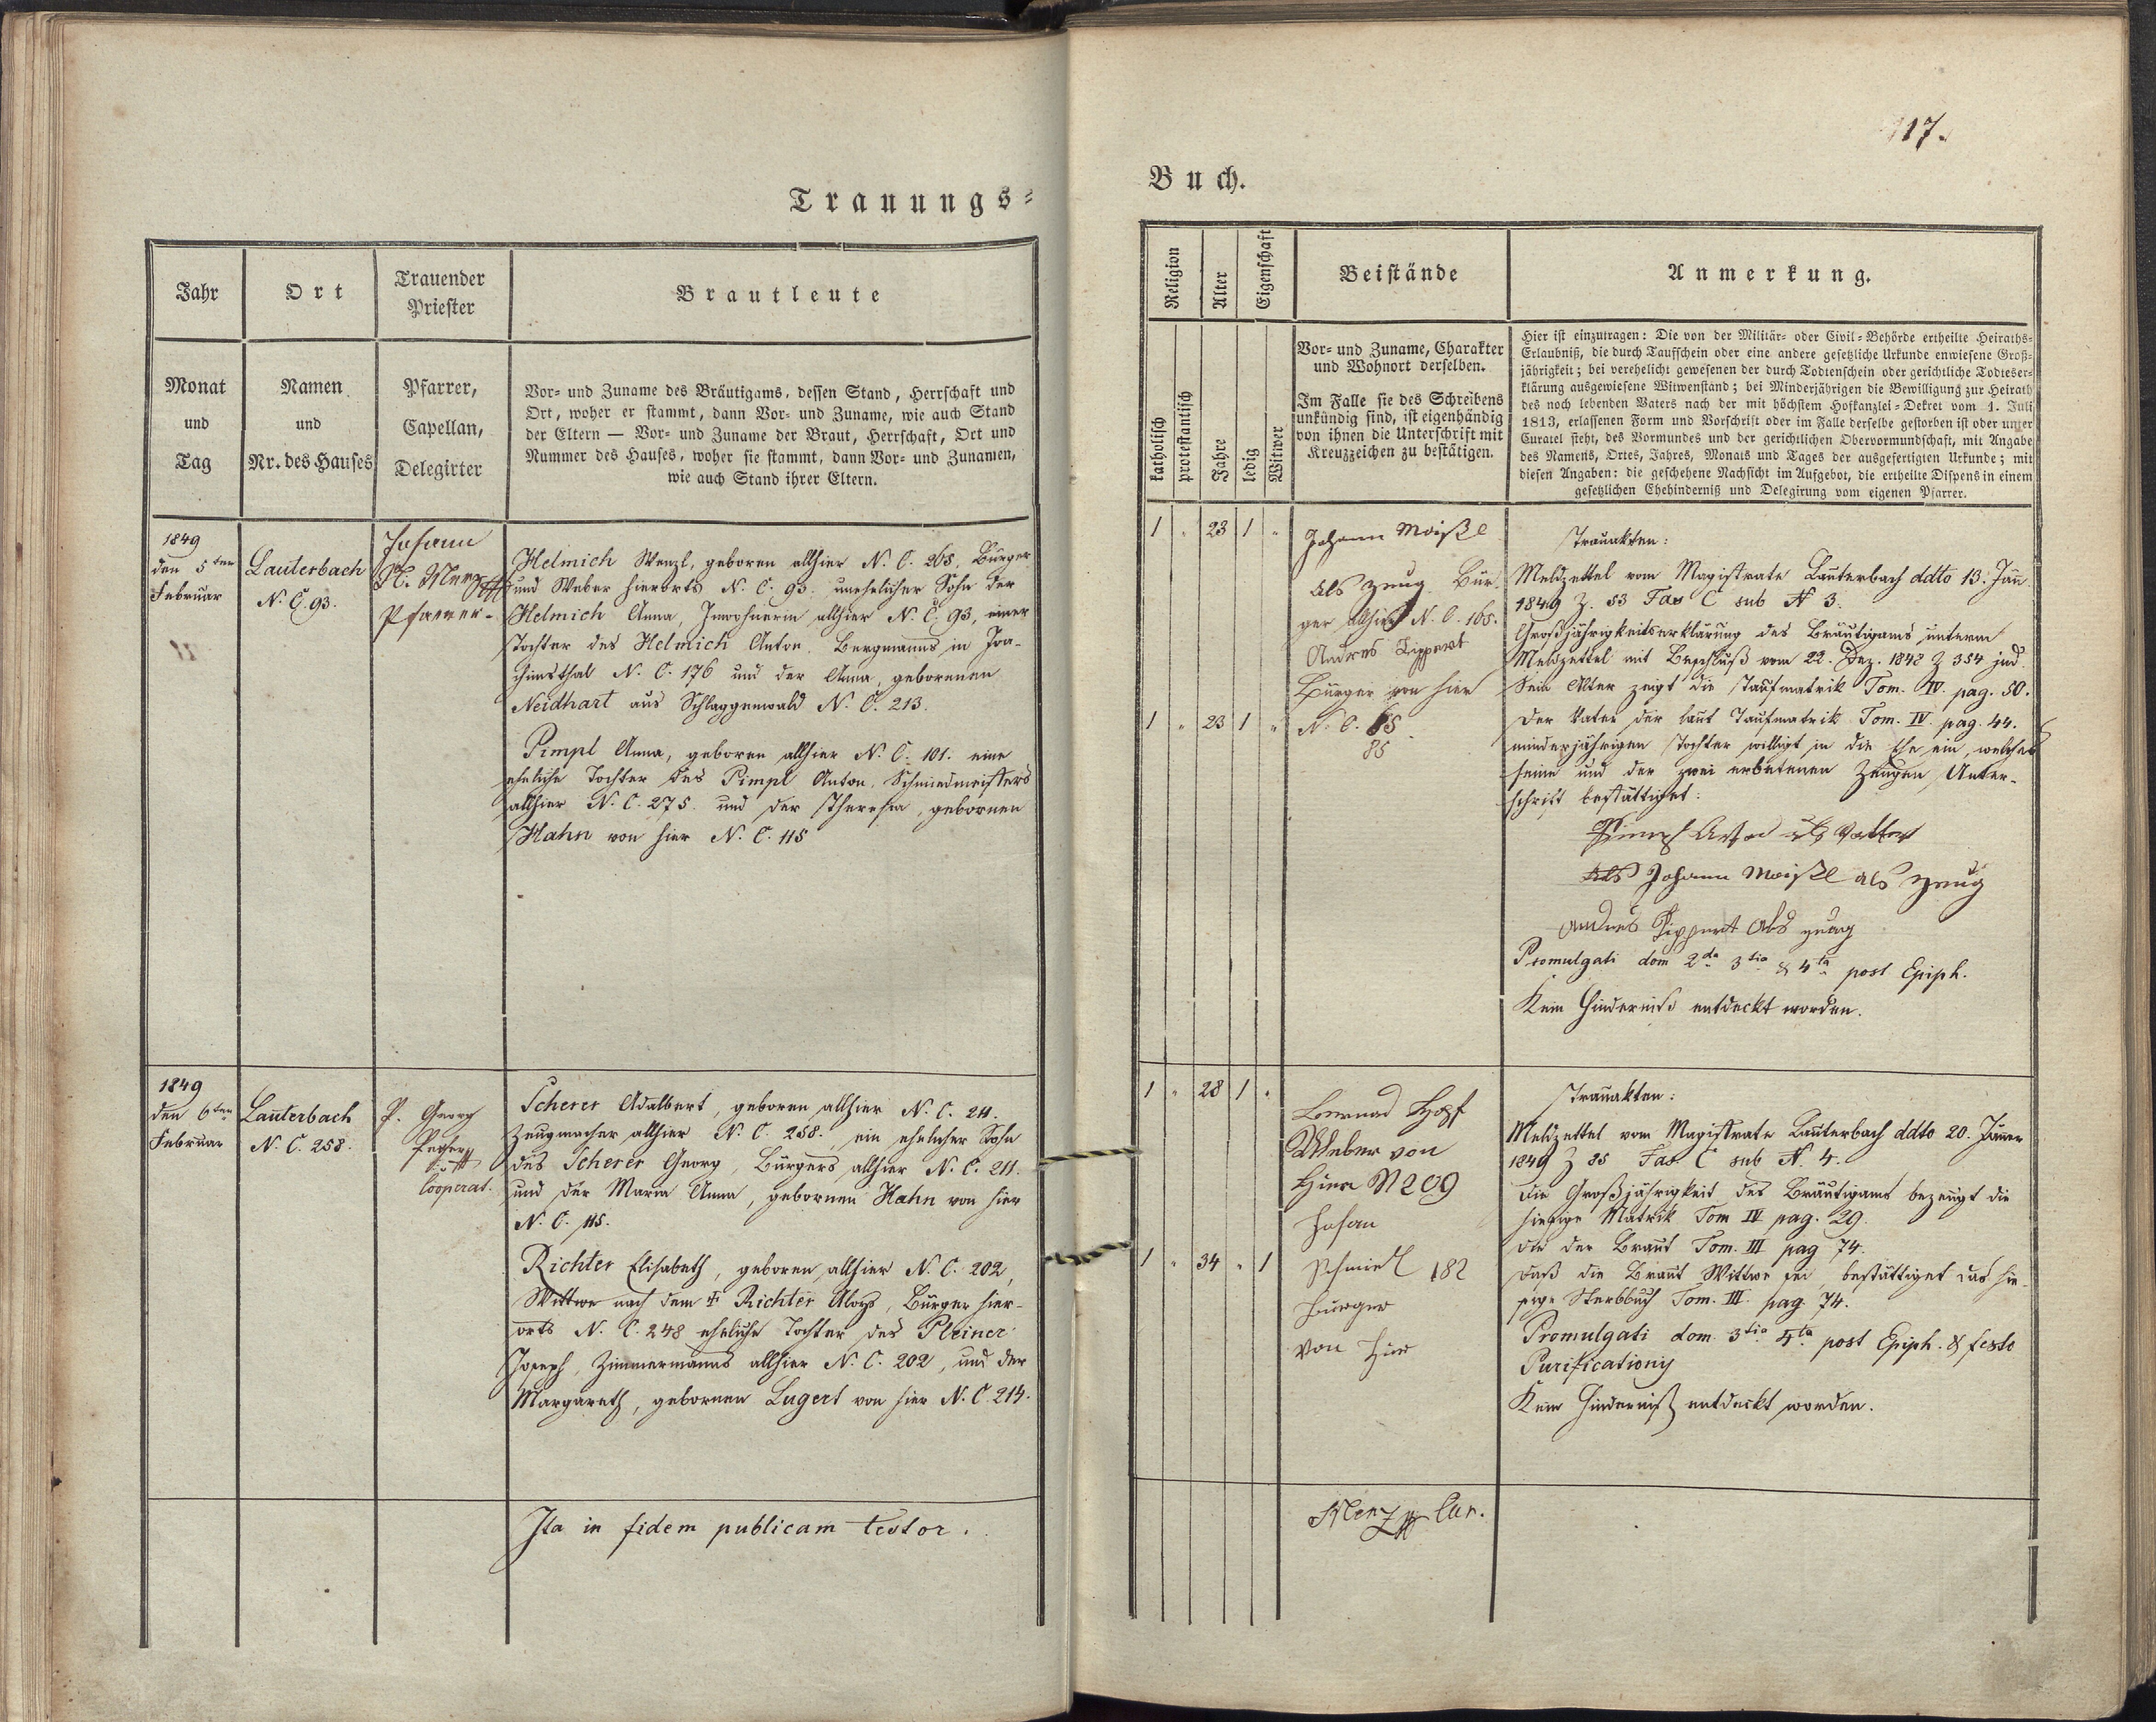 117.
Trauungs=
Buch.
Jahr
Ort
Trauender
Priester
Brautleute
Monat
und
Tag
Namen
und
Nr. des Hauses
Pfarrer,
Capellan,
Delegirter
Vor= und Zuname des Bräutigams, dessen Stand, Herrschaft und
Ort, woher er stammt, dann Vor= und Zuname, wie auch Stand
der Eltern — Vor= und Zuname der Braut, Herrschaft, Ort und
Nummer des Hauses, woher sie stammt, dann Vor= und Zunamen,
wie auch Stand ihrer Eltern.
1849
den 5ten
Februar
Lauterbach
N. C. 93.
Johann
Pfarrer.
Helmich Wenzl, geboren allhier N. C. 265, Bürger
und Weber hierorts N. C. 93. unehelicher Sohn der
Helmich Anna, Inwohnerin allhier N. C. 93, einer
Tochter des Helmich Anton, Bergmanns in Joa-
chimsthal N. C. 176 und der Anna, gebornen
Neidhart aus Schlaggenwald N. C. 213.
Pimpl Anna, geboren allhier N. C. 101. eine
eheliche Tochter des Pimpl Anton, Schmiedmeisters
allhier N. C. 275. und der Theresia, gebornen
Hahn von hier N. C. 115
1849
den 6ten
Februar
Lauterbach
N. C. 258.
P. Georg
Cooperat.
Scherer Adalbert, geboren allhier N. C. 211.
Zeugmacher allhier N. C. 258. ein ehelicher Sohn
des Scherer Georg, Bürgers allhier N. C. 211.
und der Maria Anna, gebornen Hahn von hier
N. C. 115.
Richter Elisabeth, geboren allhier N. C. 202,
Wittwe nach dem † Richter Aloys, Bürger hier-
orts N. C. 248 eheliche Tochter des Pleiner
Joseph, Zimmermanns allhier N. C. 202, und der
Margareth, gebornen Lugert von hier N. C. 214.
Ita in fidem publicam testor.
Religion
Alter
Eigenschaft
Beistände
Anmerkung.
katholisch
protestantisch
Jahre
ledig
Witwer
Vor= und Zuname, Charakter
und Wohnort derselben.
Im Falle sie des Schreibens
unkündig sind, ist eigenhändig
von ihnen die Unterschrift mit
Kreuzzeichen zu bestätigen.
Hier ist einzutragen: Die von der Militär= oder Civil=Behörde ertheilte Heiraths=
Erlaubniß, die durch Taufschein oder eine andere gesetzliche Urkunde erwiesene Groß=
jährigkeit; bei verehelicht gewesenen der durch Todtenschein oder gerichtliche Todteser=
klärung ausgewiesene Witwenstand; bei Minderjährigen die Bewilligung zur Heirath
des noch lebenden Vaters nach der mit höchstem Hofkanzlei=Dekret vom 1. Juli
1813, erlassenen Form und Vorschrift oder im Falle derselbe gestorben ist oder unter
Curatel steht, des Vormundes und der gerichtlichen Obervormundschaft, mit Angabe
des Namens, Ortes, Jahres, Monats und Tages der ausgefertigten Urkunde; mit
diesen Angaben: die geschehene Nachsicht im Aufgebot, die ertheilte Dispens in einem
gesetzlichen Ehehinderniß und Delegirung vom eigenen Pfarrer.
1 " 23 1 "
Johann Moißl
als Zeug Bür-
ger allhier N. C. 165.
Andres Lippert
Bürger von hier
1 " 23 1 "
N. C.
85
Trauakten:
Meldzettel vom Magistrate Lauterbach ddto 13. Jän.
1849 Z. 53 Fas C sub N 3.
Großjährigkeitserklärung des Bräutigams unterm
Meldzettel mit Beschluß vom 22. Dez. 1848 Z 354 jud.
Sein Alter zeigt die Taufmatrik Tom. IV. pag. 50.
Der Vater der laut Taufmatrik Tom. IV. pag. 44.
minderjährigen Tochter willigt in die Ehe ein, welches
seine und der zwei erbetenen Zeugen Unter-
schrift bestättiget:
als Vatter
Johann Moißl als Zeug
Andres Lippert als Zeug
Promulgati dom 2da 3tia & 4ta post Epiph.
Kein Hinderniß entdeckt worden.
1 " 28 1 "
Bernad Hopf
Weber von
Hier N 209
Johan
Schmidl 182
Burger
von Hier
1 " 34 " 1
Trauakten:
Meldzettel vom Magistrate Lauterbach ddto 20. Jäner
1849 Z 85 Fas C sub N. 4.
Die Großjährigkeit des Bräutigams bezeugt die
hiesige Matrik Tom IV pag. 29.
die der Braut Tom. III pag 74.
Daß die Braut Wittwe sei, bestättiget das hie-
sige Sterbbuch Tom. III. pag. 74.
Promulgati dom. 3tia 4ta post Epiph. & festo
Purificationis
Kein Hinderniß entdeckt worden.